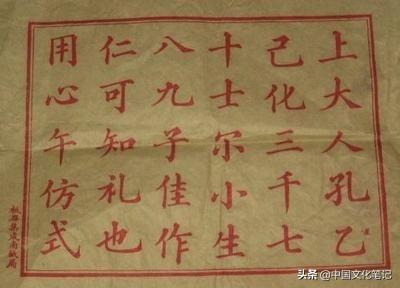 上大人孔乙
己化三千七
十士尔小生
八九子佳作
仁可知礼也
用心午仿式
头条 @中国文化笔记